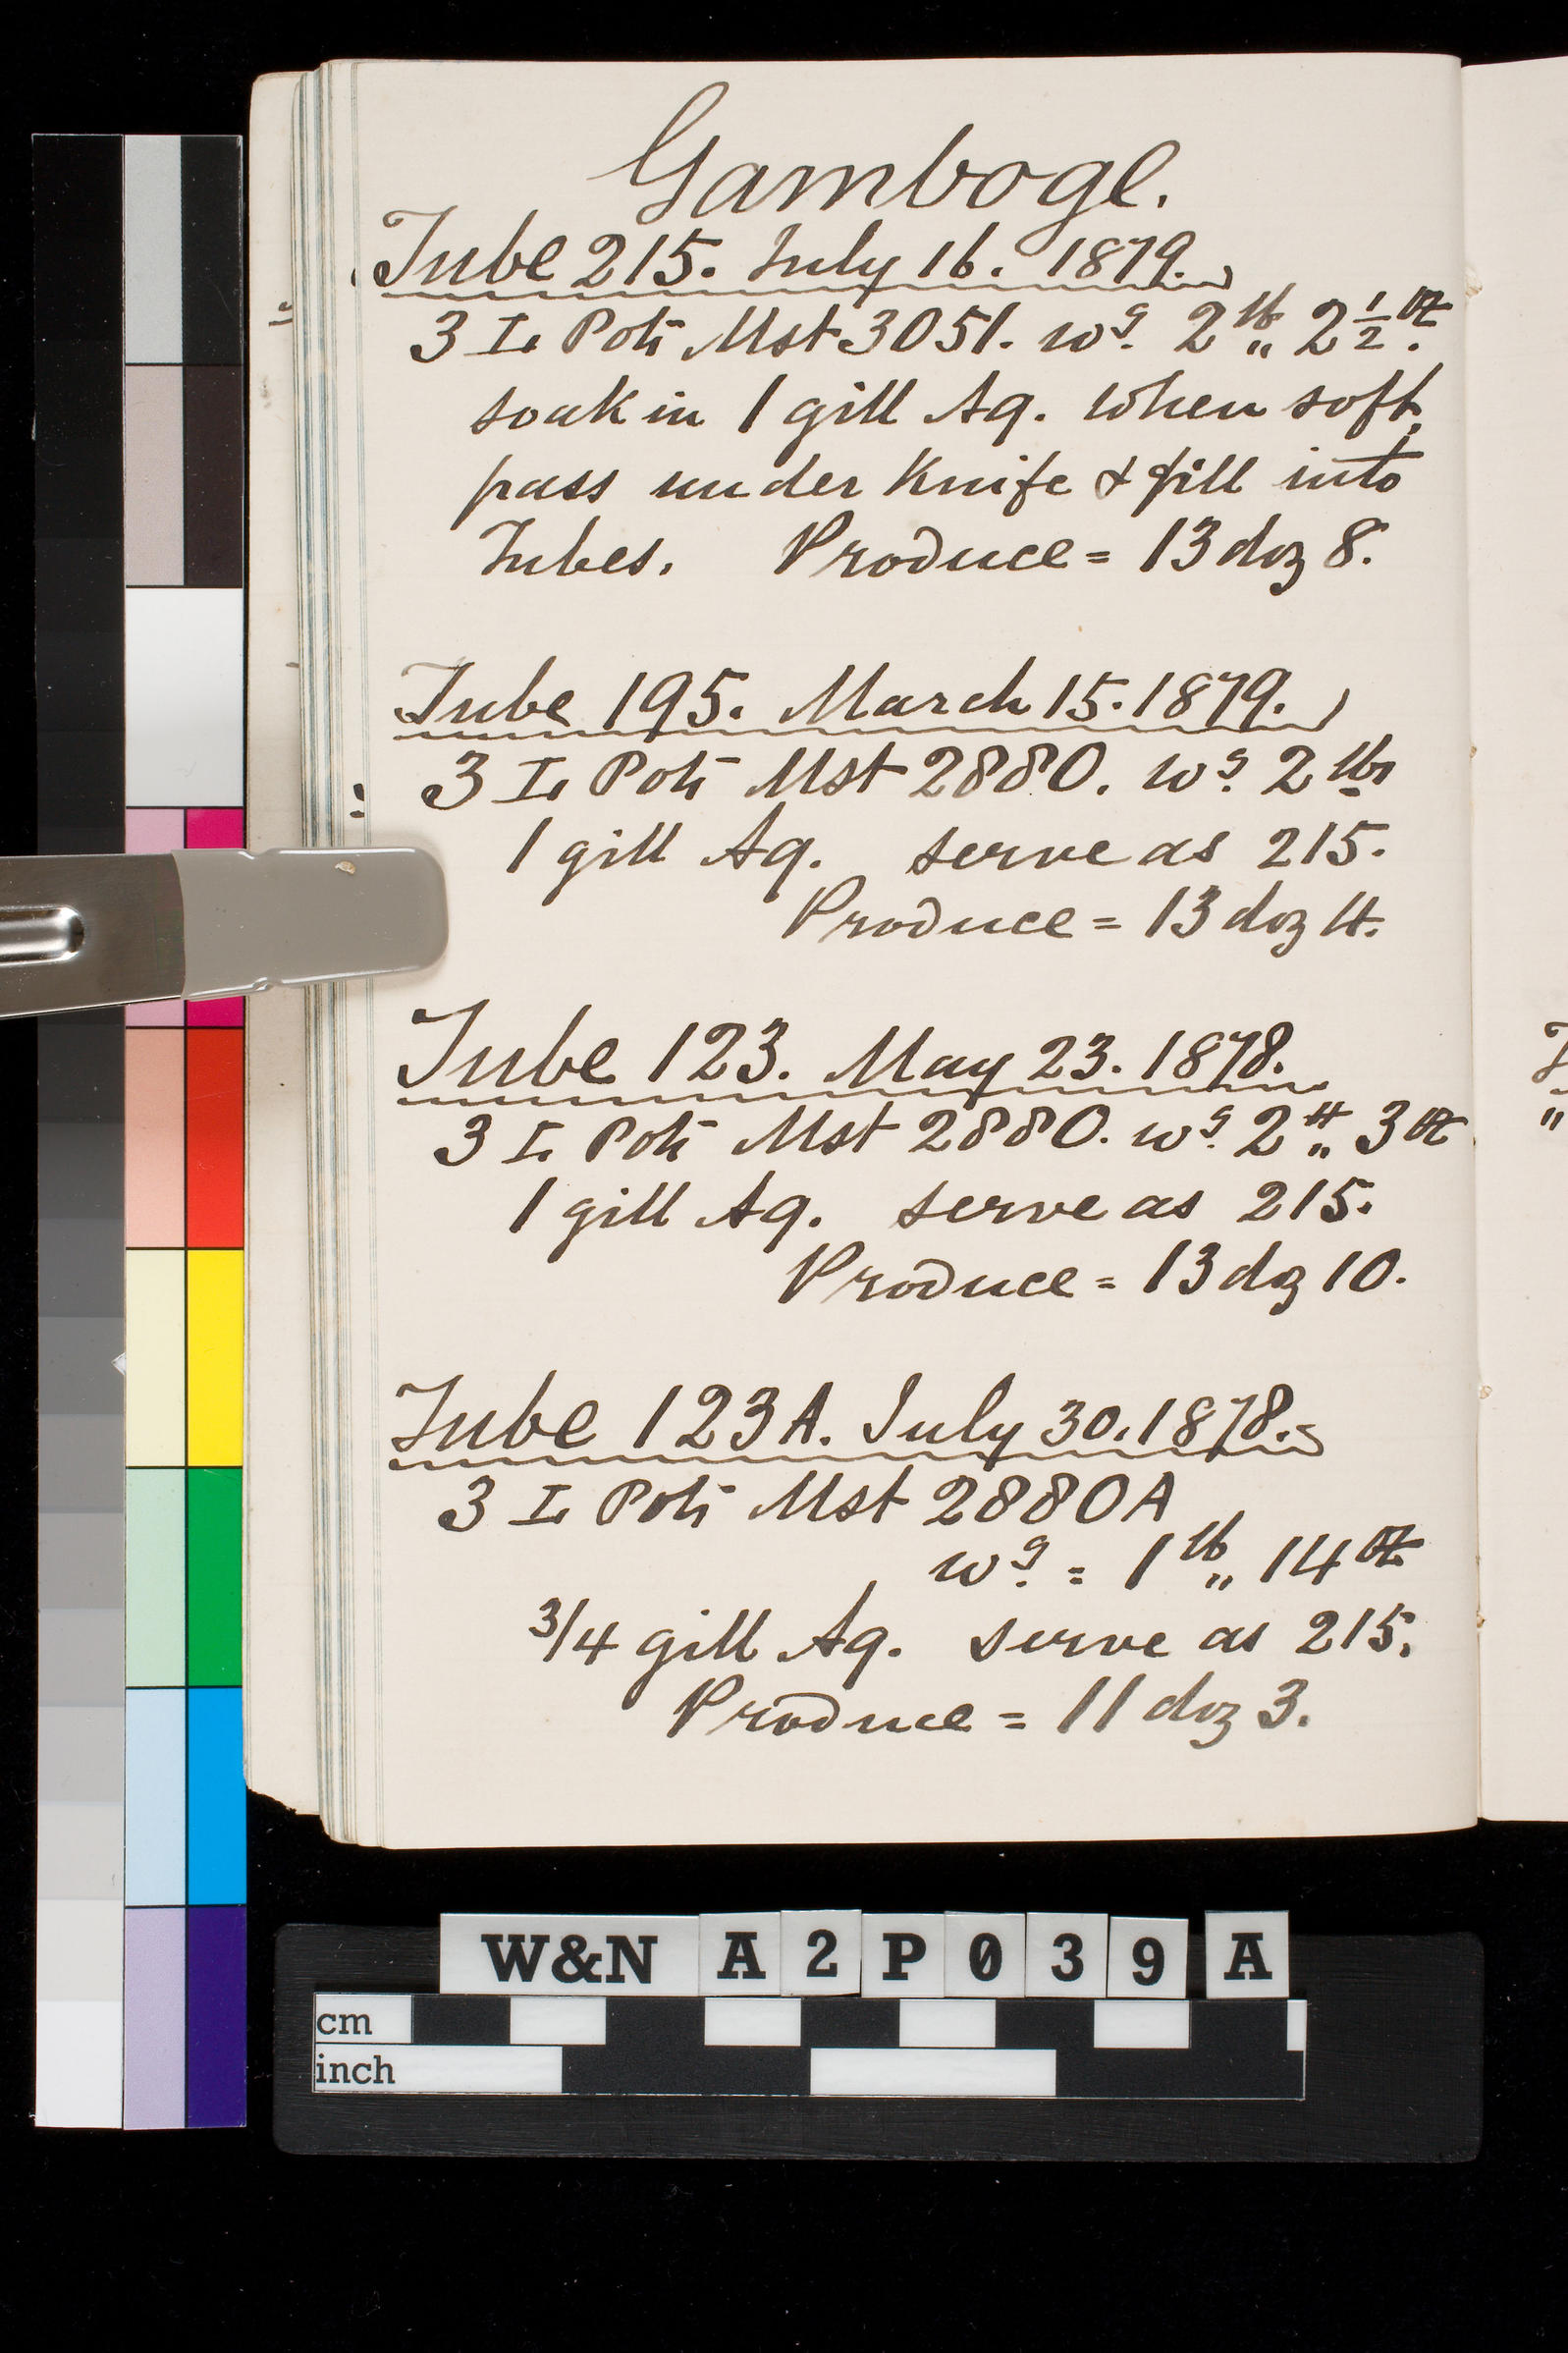 Gamboge.
Tube 215. July 16. 1879.
3 I. Pots Mst 3051. wg. 2 lb „ 2 1/2 oz.
soak in 1 gill Aq. When soft,
pass under Knife & fill into
Tubes. Produce = 13 doz 8.
Tube 195. March 15. 1879.
3 I. Pots Mst 2880. wg. 2 lbs
1 gill Aq. serve as 215.
Produce = 13 doz 4.
Tube 123. May 23. 1878.
3 I. Pots Mst 2880. wg. 2 lb „ 3 oz
1 gill Aq. serve as 215.
Produce = 13 doz 10.
Tube 123A. July 30. 1878.
3 I. Pots Mst 2880A
wg. = 1 lb „ 14 oz
3/4 gill Aq. serve as 215.
Produce = 11 doz 3.
W&N A2P039A
cm
inch